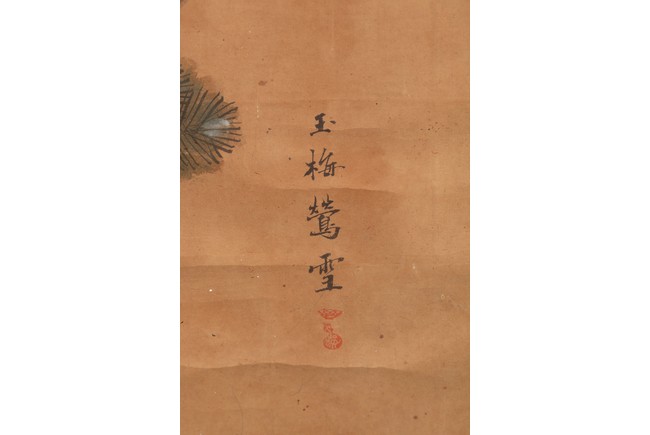 玉梅鶯雪